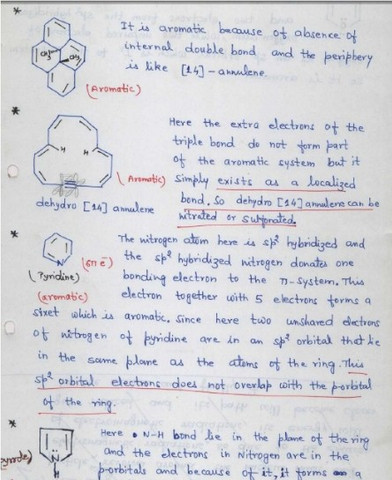 * It is aromatic because of absence of
internal double bond and the periphery
is like [14] - annulene.
CH3 CH3
(Aromatic)
* Here the extra electrons of the
triple bond do not form part
of the aromatic system but it
simply exists as a localized
bond. So dehydro [14] annulene can be
nitrated or sulfonated.
H H
(Aromatic)
dehydro [14] annulene
* The nitrogen atom here is sp² hybridized and
the sp² hybridized nitrogen donates one
bonding electron to the π-system. This
electron together with 5 electrons forms a
N
(6π e⁻)
(Pyridine)
(aromatic)
sextet which is aromatic. Since here two unshared electrons
of nitrogen of pyridine are in an sp² orbital that lie
in the same plane as the atoms of the ring. This
sp² orbital electrons does not overlap with the p-orbital
of the ring.
* Here N-H bond lie in the plane of the ring
and the electrons in Nitrogen are in the
p-orbitals and because of it, it forms a
N
H
(Pyrrole)